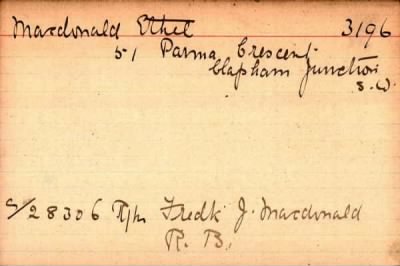 Macdonald Ethel 3196
51 Parma Crescent
Clapham Junction
S.W.
S/28306 R/n Fredk J. Macdonald
R. B.